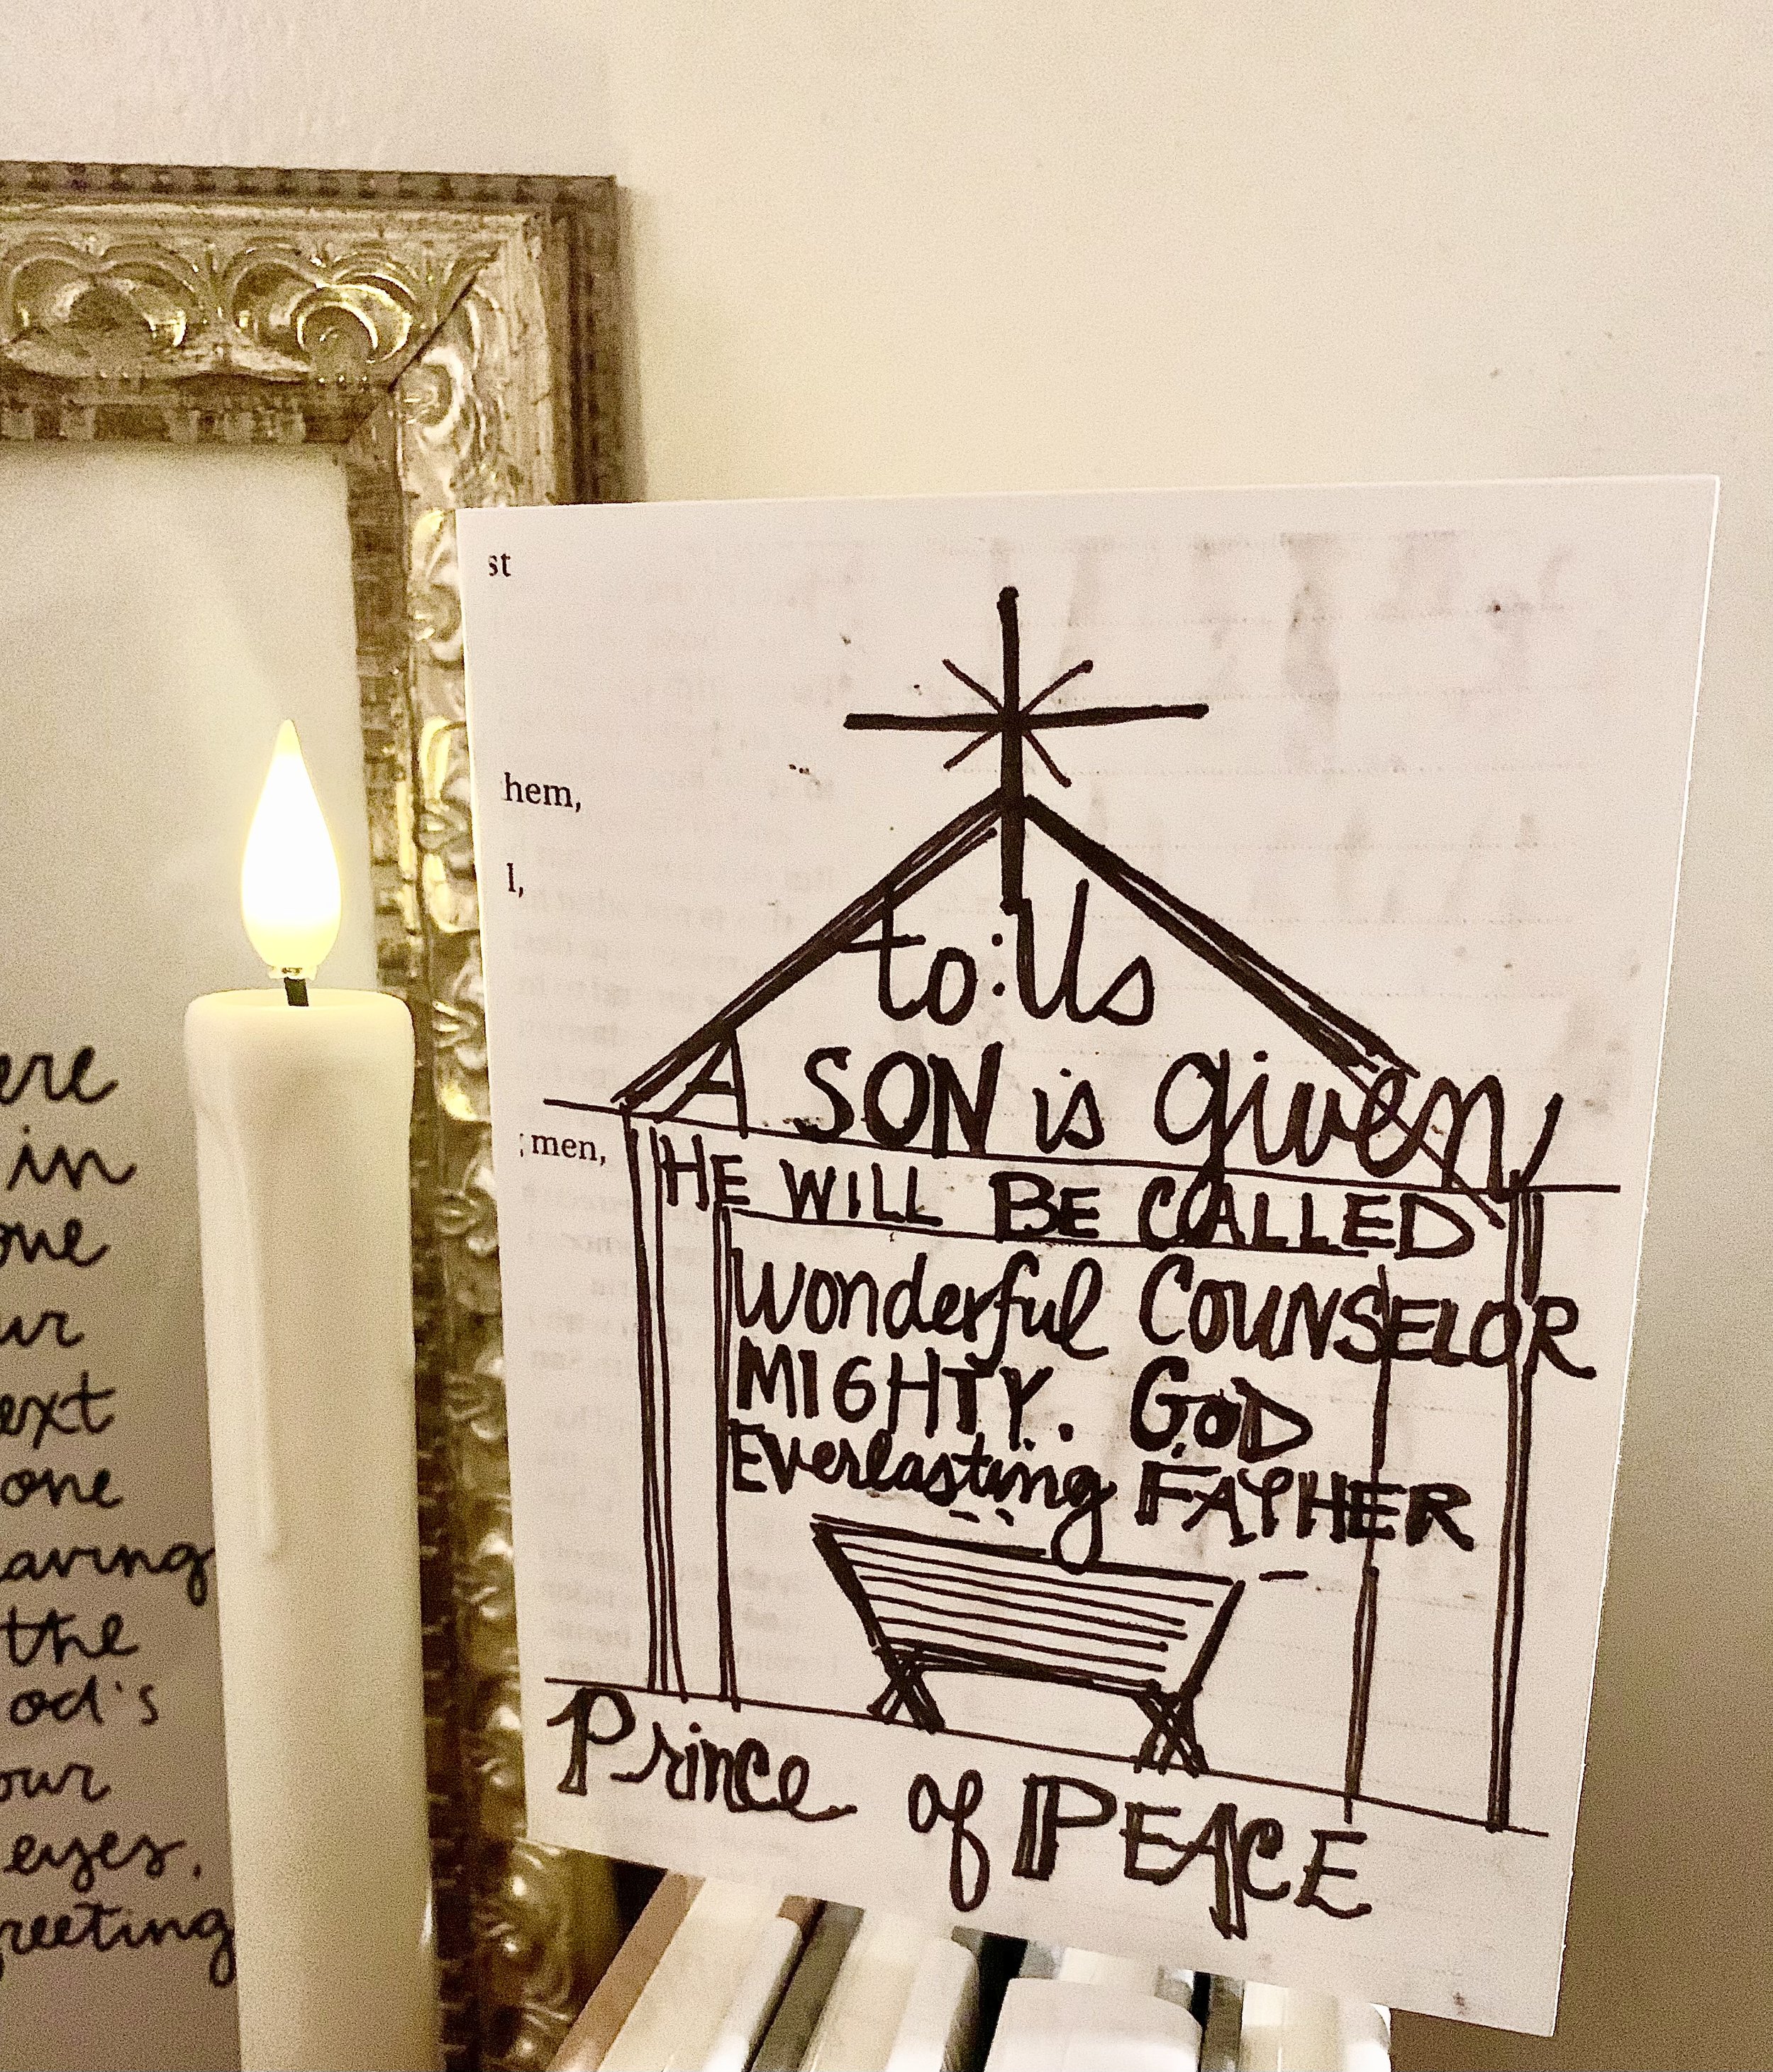 ere
in
one
ur
ext
one
aving
the
od's
our
eyes.
reeting
st
hem,
l,
; men,
to: Us
A SON is given
HE WILL BE CALLED
Wonderful COUNSELOR
MIGHTY. GOD
Everlasting FATHER
Prince of PEACE